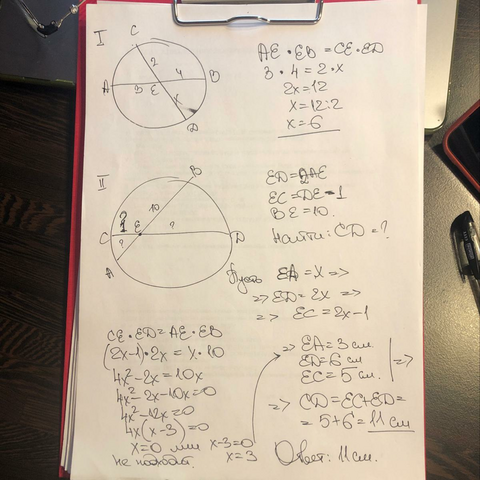 I
C
2
4
A
3
E
B
x
D
AE · EB = CE · ED
3 · 4 = 2 · x
2x = 12
x = 12 : 2
x = 6
II
B
10
E
?
C
D
?
A
ED = 2AE
EC = DE - 1
BE = 10.
Найти: CD = ?
Пусть EA = x =>
=> ED = 2x =>
=> EC = 2x - 1
CE · ED = AE · EB
(2x - 1) · 2x = x · 10
4x² - 2x = 10x
4x² - 2x - 10x = 0
4x² - 12x = 0
4x(x - 3) = 0
x = 0 или x - 3 = 0
не подходит. x = 3
=> EA = 3 см.
ED = 6 см =>
EC = 5 см.
=> CD = EC + ED =
= 5 + 6 = 11 см
Ответ: 11 см.